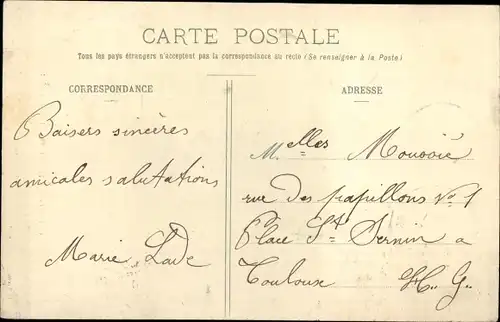 CARTE POSTALE
Tous les pays étrangers n'acceptent pas la correspondance au recto (Se renseigner à la Poste)
CORRESPONDANCE
Baisers sincères
amicales salutations
Marie Lade
ADRESSE
Melles
rue des papillons No 1
Place St Sernin a
Toulouse H. G.